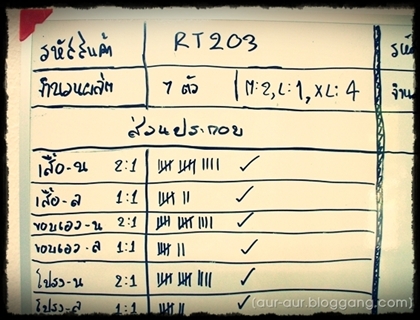 รหัสสินค้า RT203
จำนวนผลิต 7 ตัว M:2, L:1, XL:4
ส่วนประกอบ
เสื้อ-น 2:1 ✓
เสื้อ-ล 1:1 ✓
ขอบเอว-น 2:1 ✓
ขอบเอว-ล 1:1 ✓
โปรง-น 2:1 ✓
โปรง-ล 1:1 ✓
(aur-aur.bloggang.com)